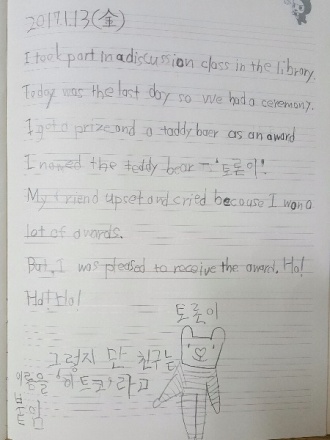 2017.1.13(金)
I took part in a discussion class in the library.
Today was the last day so we had a ceremony.
I get a prize and a taddy baer as an award
I named the teddy bear – '토론이!
My friend upset and cried because I won a
lot of awards.
But, I was pleased to receive the award. Ha!
Ha! Ha!
토론이
그렇지만 친구는
이름을 '하트코'라고
붙임